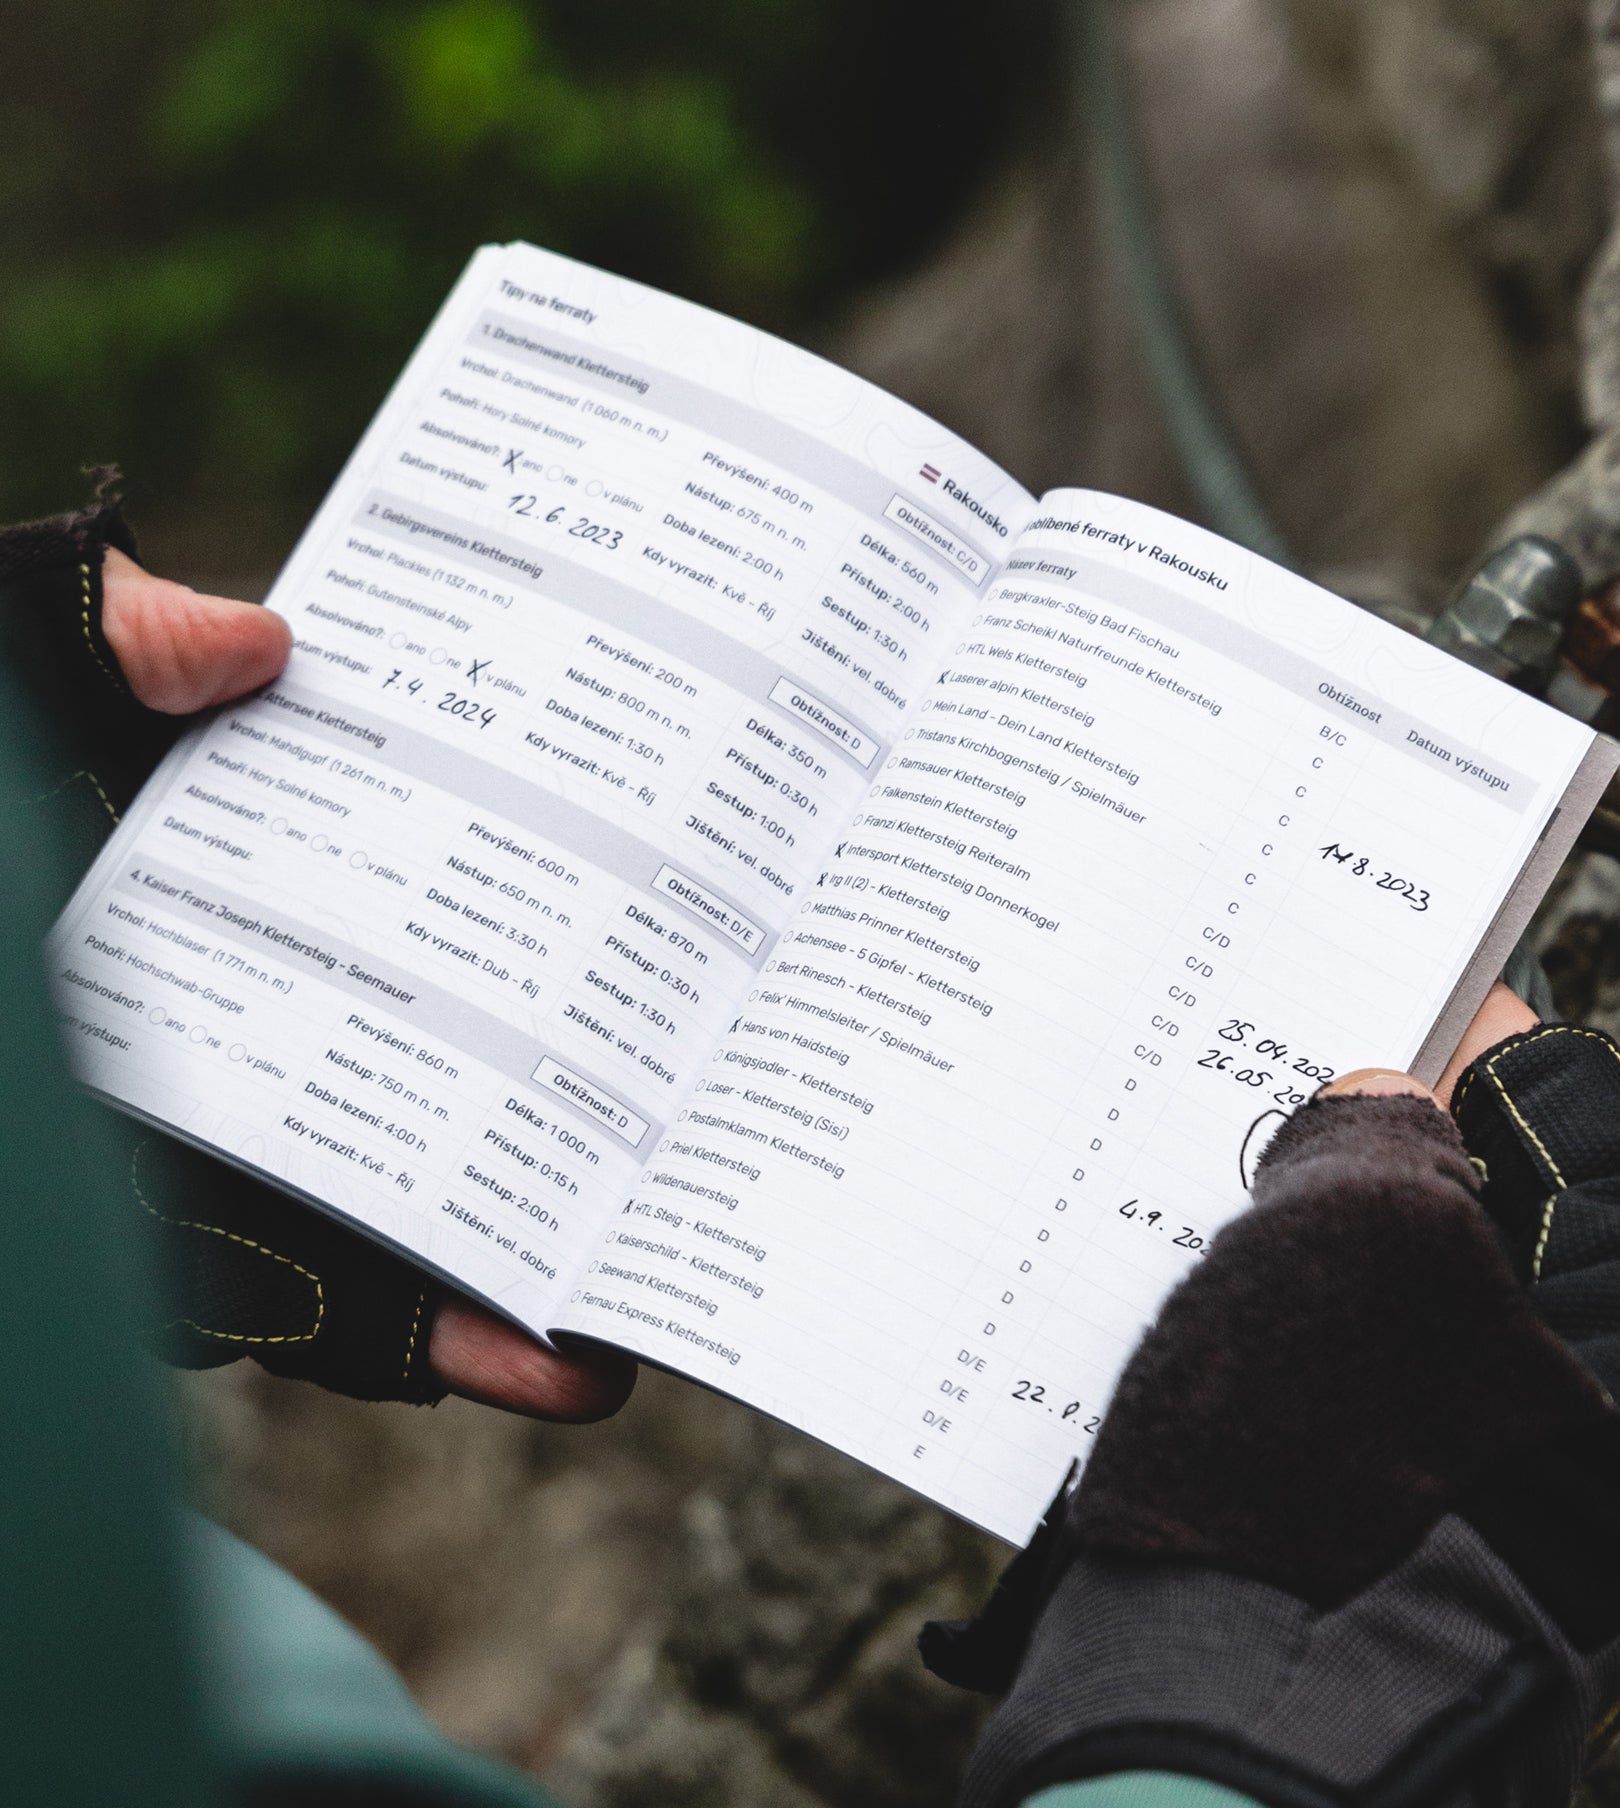 Tipy na ferraty
Rakousko
1. Drachenwand Klettersteig
Obtížnost: C/D
Vrchol: Drachenwand (1 060 m n. m.)
Převýšení: 400 m
Délka: 560 m
Pohoří: Hory Solné komory
Nástup: 675 m n. m.
Přístup: 2:00 h
Absolvováno?: X ano ne v plánu
Doba lezení: 2:00 h
Sestup: 1:30 h
Datum výstupu: 12.6.2023
Kdy vyrazit: Kvě - Říj
Jištění: vel. dobré
2. Gebirgsvereins Klettersteig
Obtížnost: D
Vrchol: Plackles (1 132 m n. m.)
Převýšení: 200 m
Délka: 350 m
Pohoří: Gutensteinské Alpy
Nástup: 800 m n. m.
Přístup: 0:30 h
Absolvováno?: ano ne X v plánu
Doba lezení: 1:30 h
Sestup: 1:00 h
atum výstupu: 7.4.2024
Kdy vyrazit: Kvě - Říj
Jištění: vel. dobré
Attersee Klettersteig
Obtížnost: D/E
Vrchol: Mahdlgupf (1 261 m n. m.)
Převýšení: 600 m
Délka: 870 m
Pohoří: Hory Solné komory
Nástup: 650 m n. m.
Přístup: 0:30 h
Absolvováno?: ano ne v plánu
Doba lezení: 3:30 h
Sestup: 1:30 h
Datum výstupu:
Kdy vyrazit: Dub - Říj
Jištění: vel. dobré
4. Kaiser Franz Joseph Klettersteig - Seemauer
Obtížnost: D
Vrchol: Hochblaser (1 771 m n. m.)
Převýšení: 860 m
Délka: 1 000 m
Pohoří: Hochschwab-Gruppe
Nástup: 750 m n. m.
Přístup: 0:15 h
Absolvováno?: ano ne v plánu
Doba lezení: 4:00 h
Sestup: 2:00 h
um výstupu:
Kdy vyrazit: Kvě - Říj
Jištění: vel. dobré
oblíbené ferraty v Rakousku
Název ferraty Obtížnost Datum výstupu
Bergkraxler-Steig Bad Fischau B/C
Franz Scheikl Naturfreunde Klettersteig C
HTL Wels Klettersteig C
X Laserer alpin Klettersteig C 14.8.2023
Mein Land - Dein Land Klettersteig C
Tristans Kirchbogensteig / Spielmäuer C
Ramsauer Klettersteig C
Falkenstein Klettersteig C/D
Franzi Klettersteig Reiteralm C/D
X Intersport Klettersteig Donnerkogel C/D 25.04.202
X Irg II (2) - Klettersteig C/D 26.05.20
Matthias Prinner Klettersteig C/D
Achensee - 5 Gipfel - Klettersteig D
Bert Rinesch - Klettersteig D
Felix' Himmelsleiter / Spielmäuer D
X Hans von Haidsteig D 4.9.202
Königsjodler - Klettersteig D
Loser - Klettersteig (Sisi) D
Postalmklamm Klettersteig D
Priel Klettersteig D
Wildenauersteig D
X HTL Steig - Klettersteig D/E 22.8.2
Kaiserschild - Klettersteig D/E
Seewand Klettersteig D/E
Fernau Express Klettersteig E